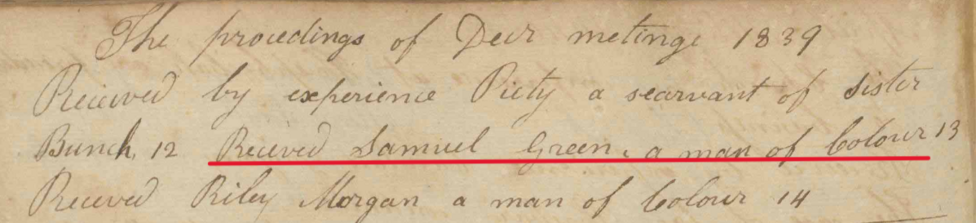 The procedings of Decr metinge 1839
Recieved by experience Piety a searvant of Sister
Bunch, 12 Recieved Samuel Green, a man of Colour 13
Receved Riley Morgan a man of Colour 14